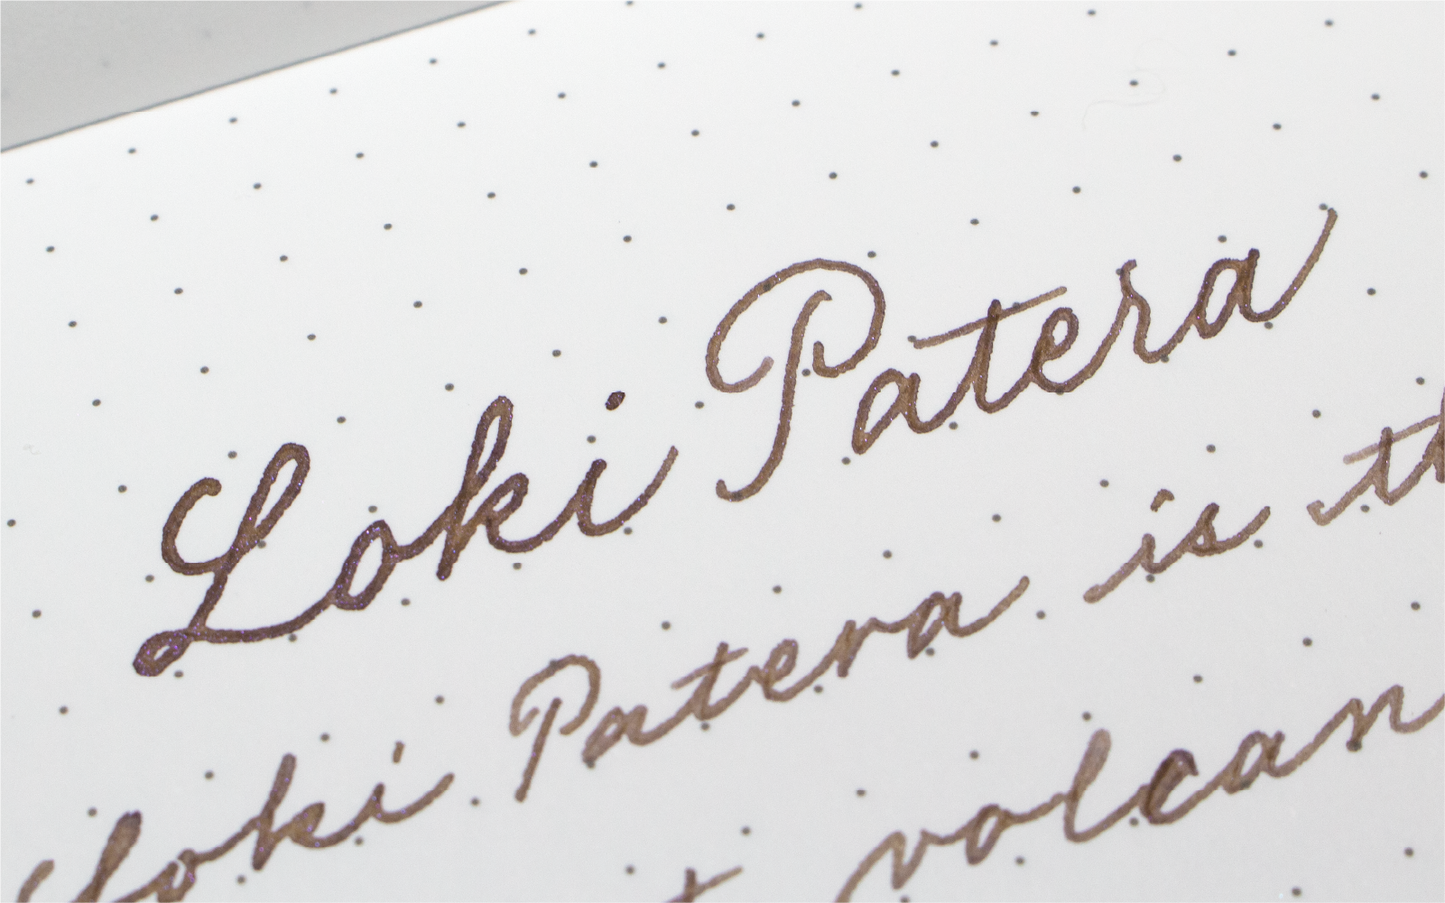 Loki Patera
Loki Patera is
volcan